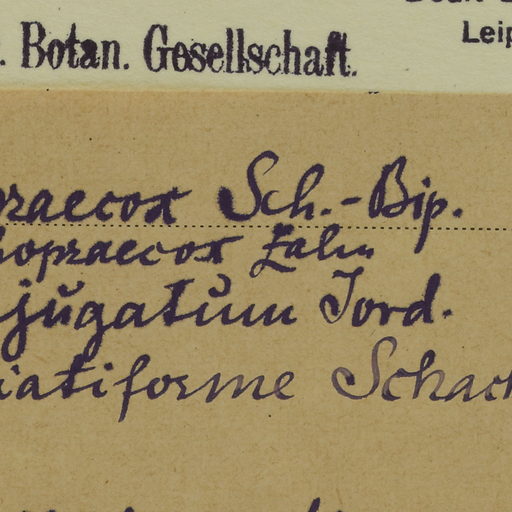 Leip
. Botan. Gesellschaft.
praecox Sch.-Bip.
hopraecox Zahn
jugatum Jord.
iatiforme Schack